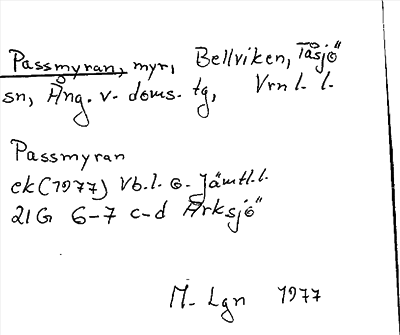 Passmyran, myr, Bellviken, Tåsjö
sn, Ång. v. doms. tg, Vrnl. l.
Passmyran
ek (1977) Vb.l. o. Jämtl.l.
21G 6-7 c-d Arksjö
M. Lgn 1977